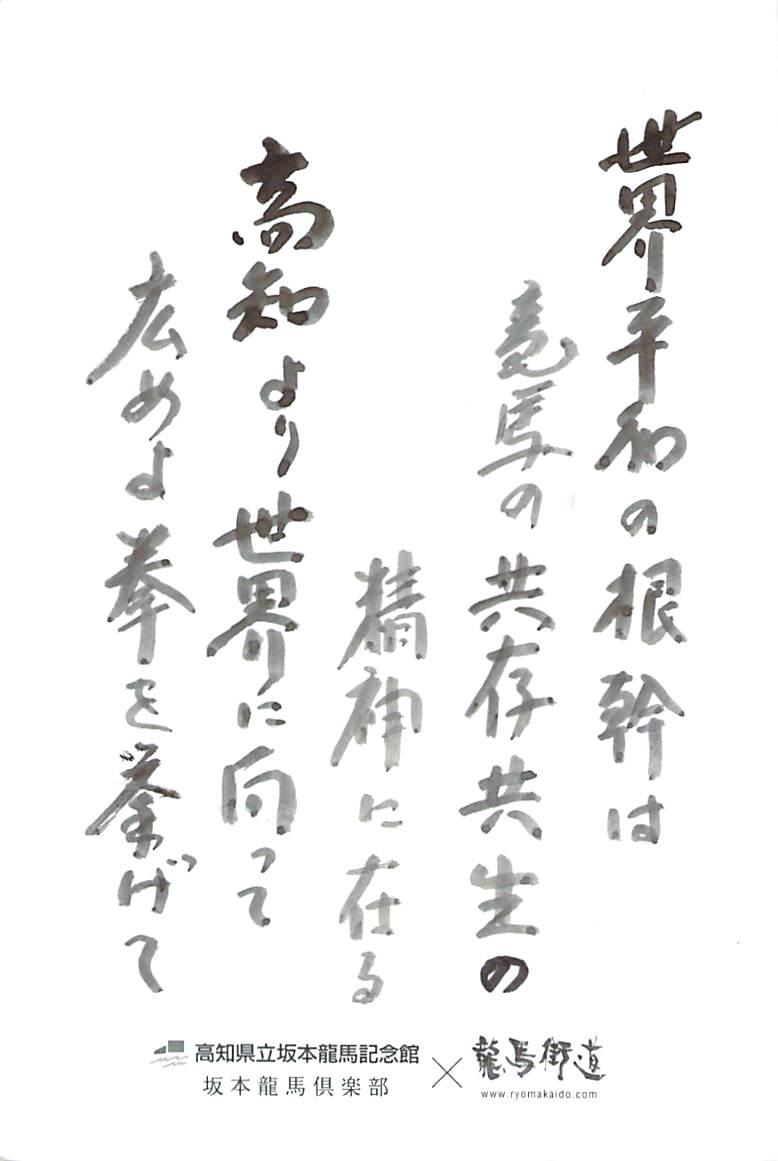 世界平和の根幹は
竜馬の共存共生の
精神に在る
高知より世界に向って
広めよ拳を挙げて
高知県立坂本龍馬記念館
坂本龍馬倶楽部
×
龍馬街道
www.ryomakaido.com